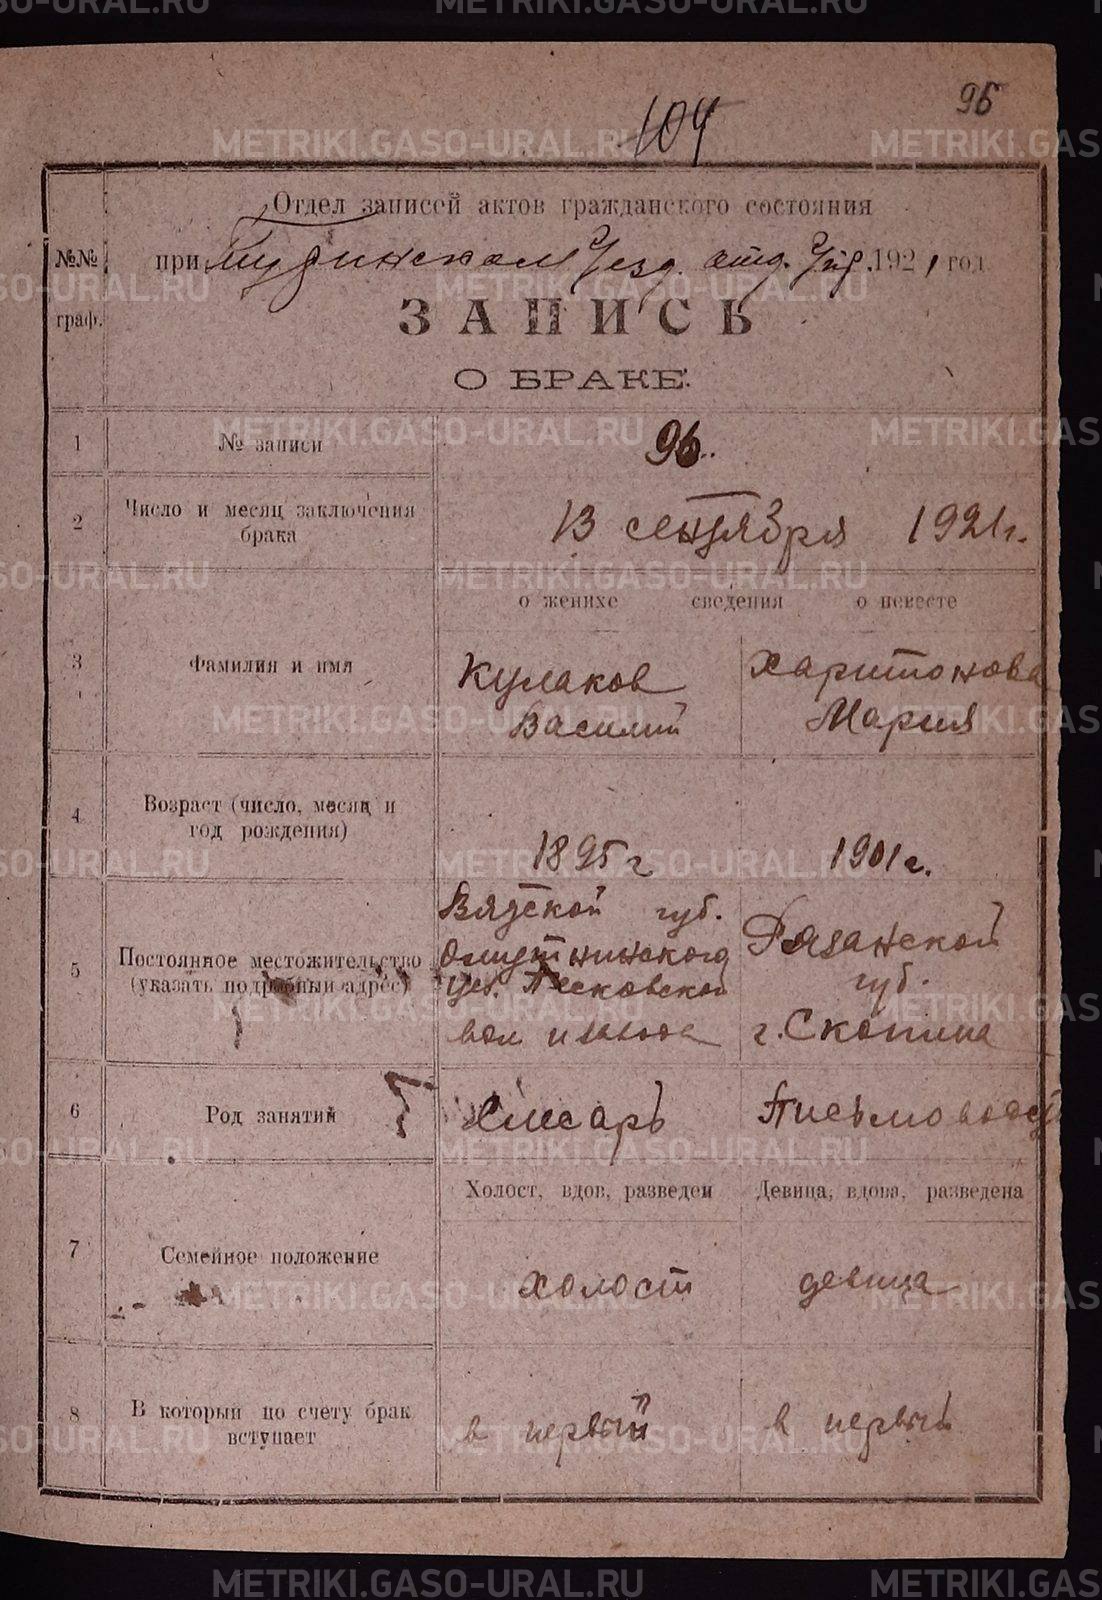 METRIKI.GASO-URAL.RU
95
104
Отдел записей актов гражданского состояния
№№ при Туринском Уезд. отд. Упр. 1921 год
граф.
ЗАПИСЬ
О БРАКЕ.
1 № записи 96.
2 Число и месяц заключения
брака
13 сентября 1921 г.
о женихе сведения о невесте
3 Фамилия и имя
Кулаков Харитонова
Василий Мария
4 Возраст (число, месяц и
год рождения)
1895 г 1901 г.
5 Постоянное местожительство
(указать подробный адрес)
Вятской губ.
Омутнинского
уез. Песковской
вол
Рязанской
губ.
г. Скопина
6 Род занятий Слесарь
Холост, вдов, разведен Девица, вдова, разведена
7 Семейное положение
холост девица
8 В который по счету брак
вступает
в первый в первый